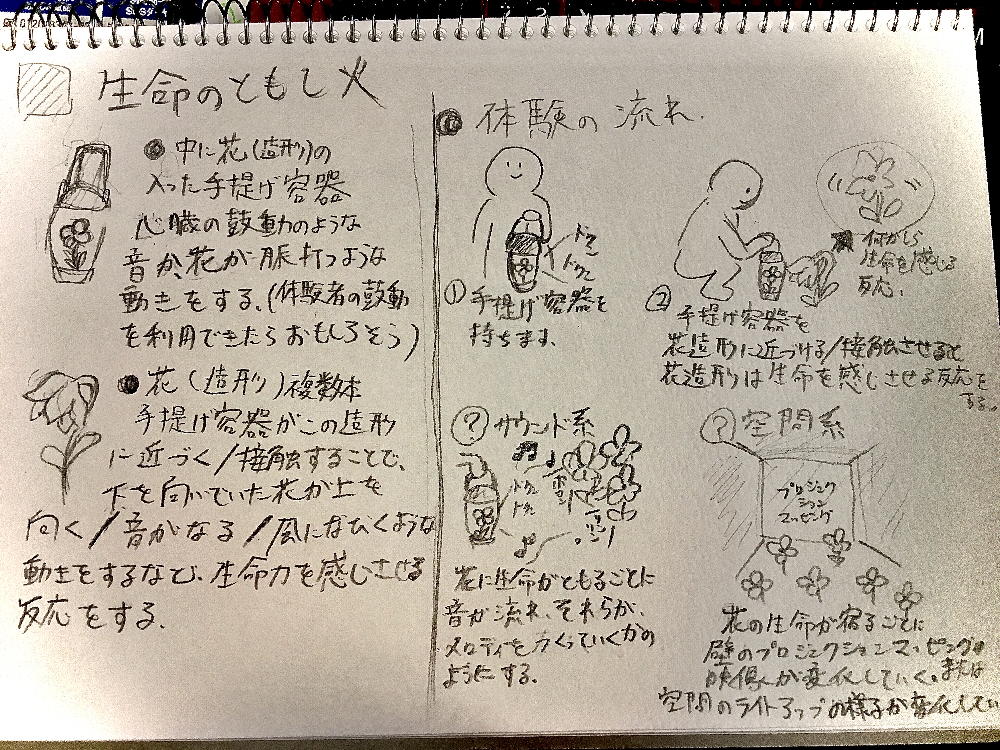 生命のともし火
● 中に花(造形)の
入った手提げ容器
心臓の鼓動のような
音か、花が脈打つような
動きをする。(体験者の鼓動
を利用できたらおもしろそう)
● 花(造形)複数本
手提げ容器がこの造形
に近づく/接触することで、
下を向いていた花が上を
向く/音がなる/風になびくような
動きをするなど、生命力を感じさせる
反応をする。
● 体験の流れ
ドクン
ドクン
① 手提げ容器を
持ちます。
何かしら
生命を感じる
反応。
② 手提げ容器を
花造形に近づける/接触させると
花造形は生命を感じさせる反応を
する。
? サウンド系
ドクン
ドクン
花に生命がともるごとに
音が流れ、それらが、
メロディをつくっていくかの
ようにする。
? 空間系
プロジェク
ション
マッピング
花の生命が宿るごとに
壁のプロジェクションマッピングの
映像が変化していく。または
空間のライトアップの様子が変化してい